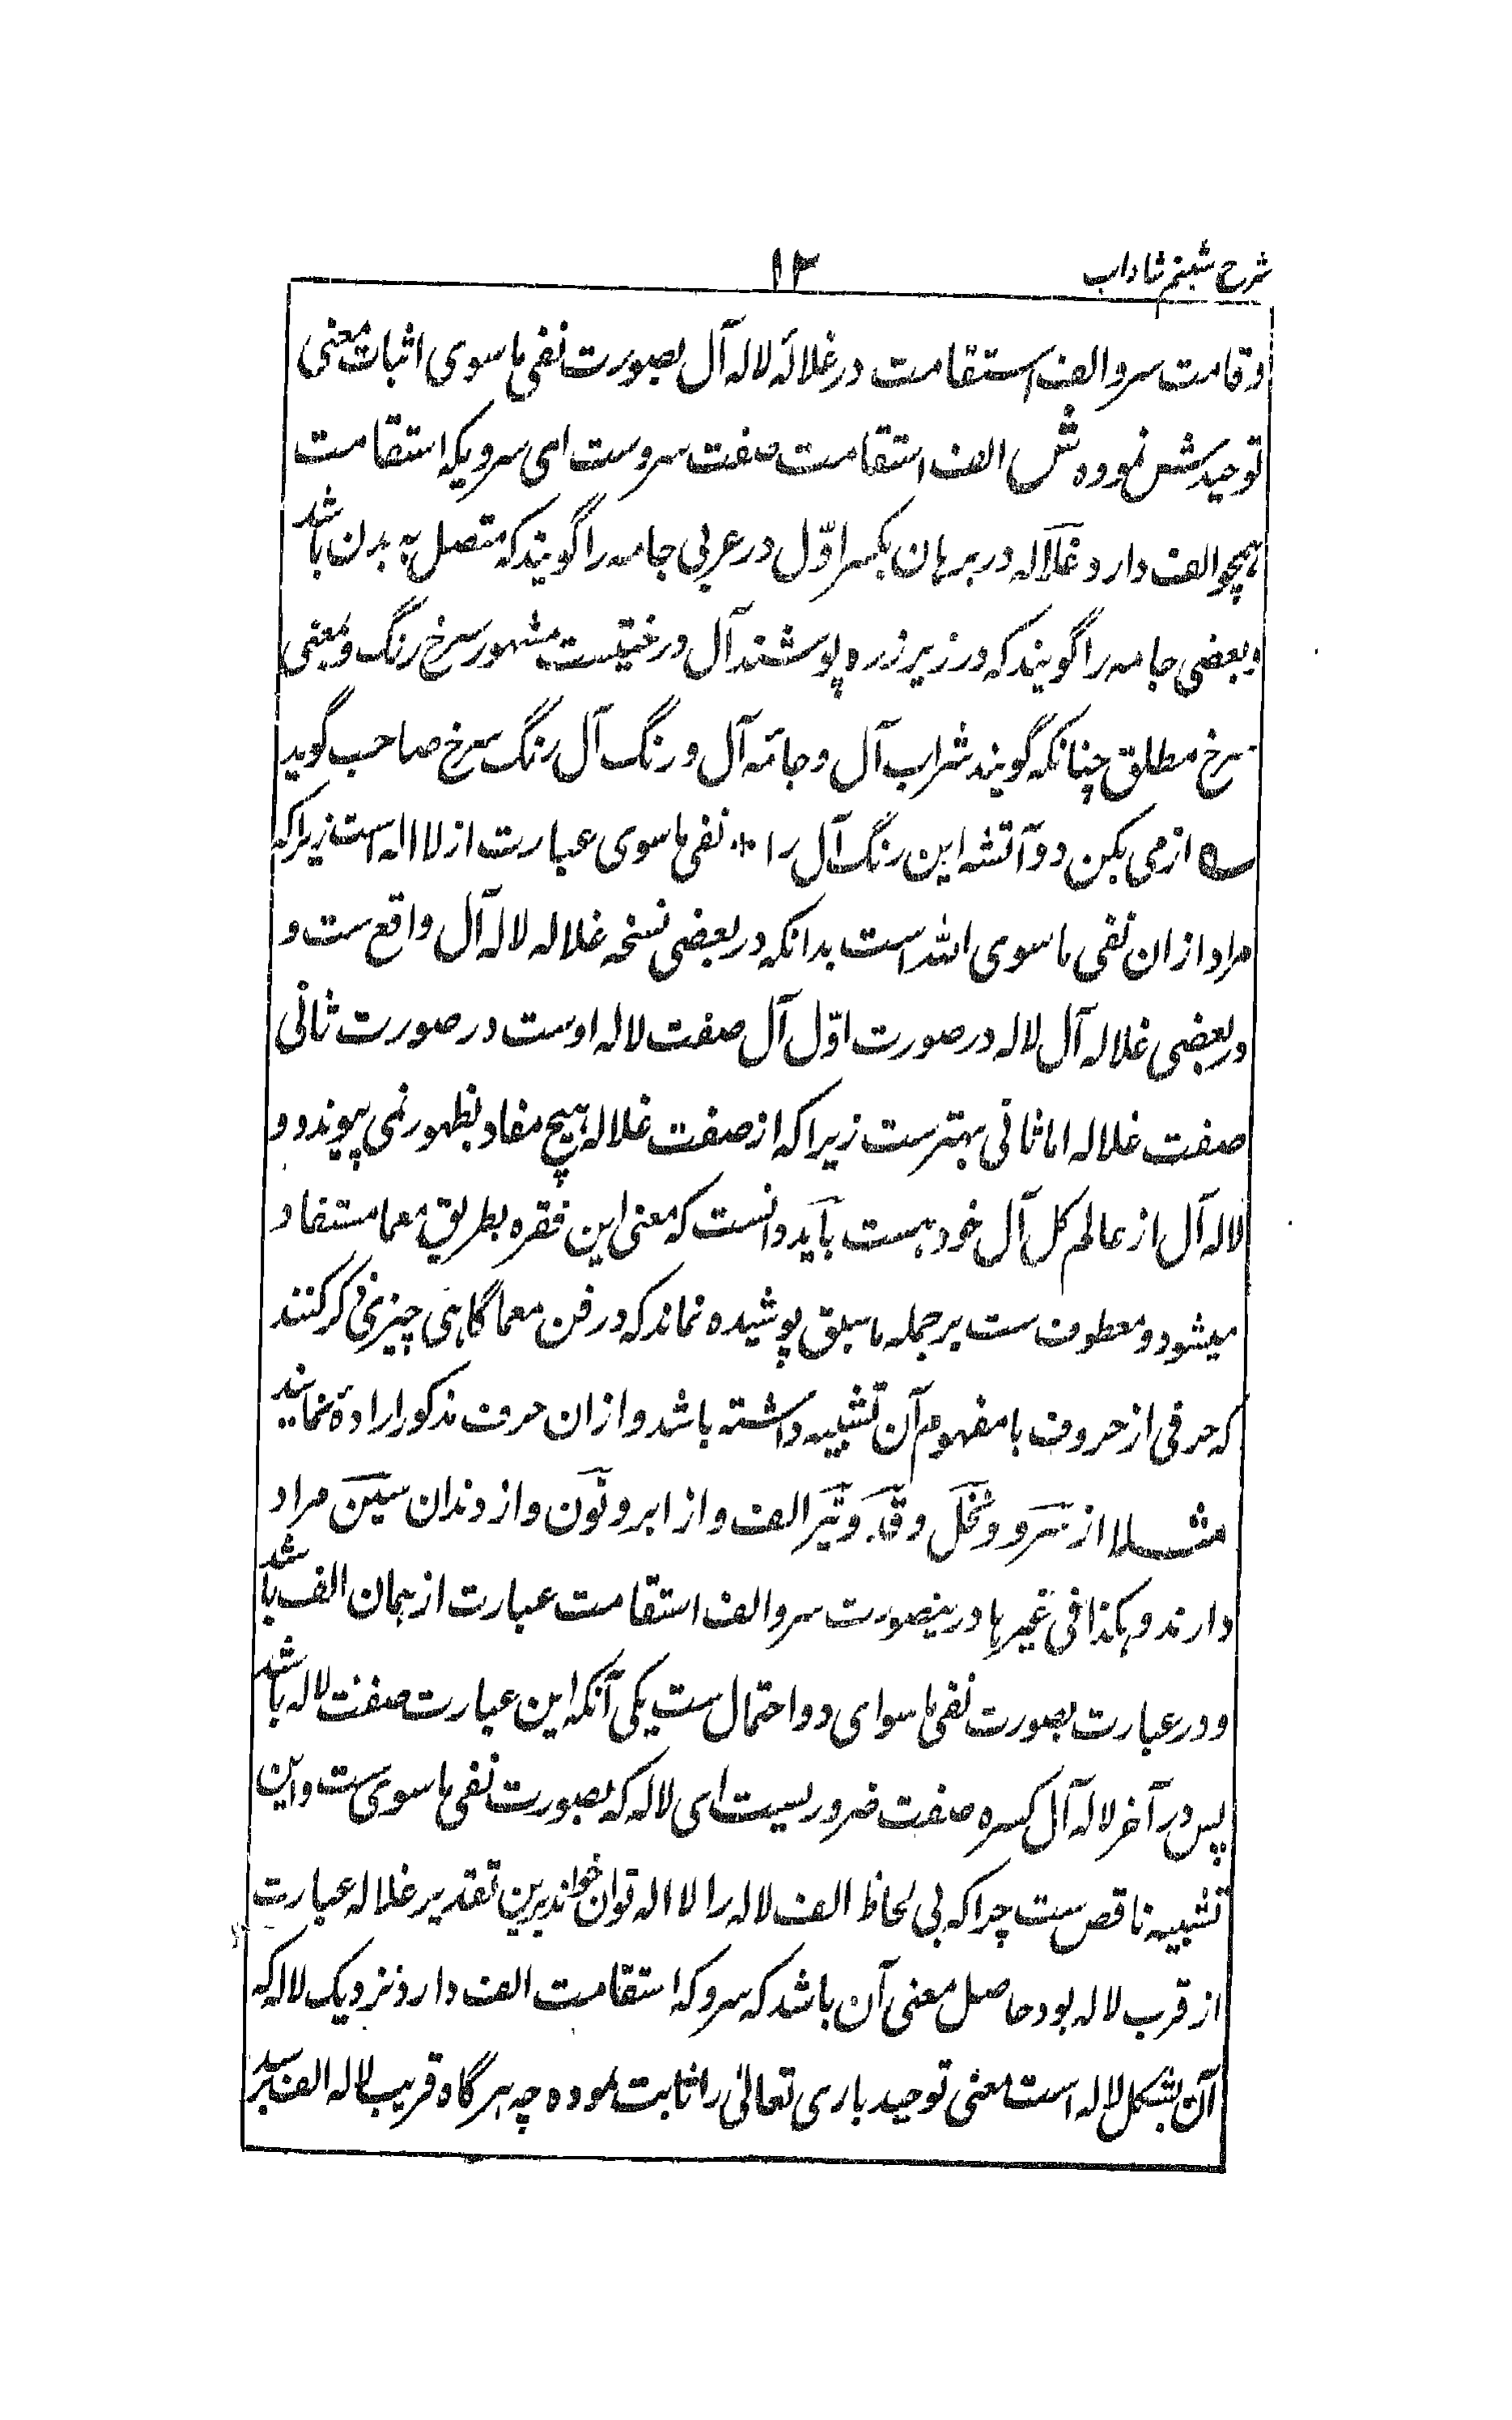 شرح شبنم شاداب
۱۲
وقامت سرو الف استقامت در غلالهٔ لاله آل بصورت نفی ماسوی اثبات معنی
توحیدش نموده ش الف استقامت صفت سروست ای سرویکه استقامت
همچو الف دارد غلاله در برهان بکسر اوّل در عربی جامه را گویند که متصل به بدن باشد
و بعضی جامه را گویند که در زیر زره پوشند آل درختیست مشهور سرخ رنگ و بمعنی
سرخ مطلق چنانکه گویند شراب آل و جامهٔ آل و رنگ آل رنگ سرخ صاحب گوید
ازمی بکن دو آتشه این رنگ آل را ٭ نفی ماسوی عبارت از لا اله است زیراکه
مراد از ان نفی ماسوی الله است بدانکه در بعضی نسخه غلاله لاله آل واقع ست و
در بعضی غلاله آل لاله در صورت اوّل آل صفت لاله اوست در صورت ثانی
صفت غلاله اما ثانی بهترست زیراکه از صفت غلاله هیچ مفاد بظهور نمی پیوندد و
لاله آل از عالم کل آل خود هست باید دانست که معنی این فقره بطریق معما مستفاد
میشود و معطوف ست بر جمله ماسبق پوشیده نماند که در فن معما گاهی چیزی ذکر کنند
که حرفی از حروف با مفهوم آن تشبیه داشته باشد و از ان حروف مذکور ارادهٔ نمایند
مثلا از سرو و نخل و قد و تیر الف و از ابرو نون و از دندان سین مراد
دارند و هکذا فی غیرها درینصورت سرو الف استقامت عبارت از همان الف باشد
و در عبارت بصورت نفی ماسوای دو احتمال ست یکی آنکه این عبارت صفت لاله باشد
پس در آخر لاله آل کسره صفت ضروریست ای لاله که بصورت نفی ماسوی ست و این
تشبیه ناقص ست چراکه بی لحاظ الف لاله را لا اله توان خواند برین تقدیر غلاله عبارت
از قرب لاله بود حاصل معنی آن باشد که سرو که استقامت الف دارد نزدیک لاله که
آن بشکل لاله است معنی توحید باری تعالیٰ را ثابت نموده چه هرگاه قریب لاله الف برسد